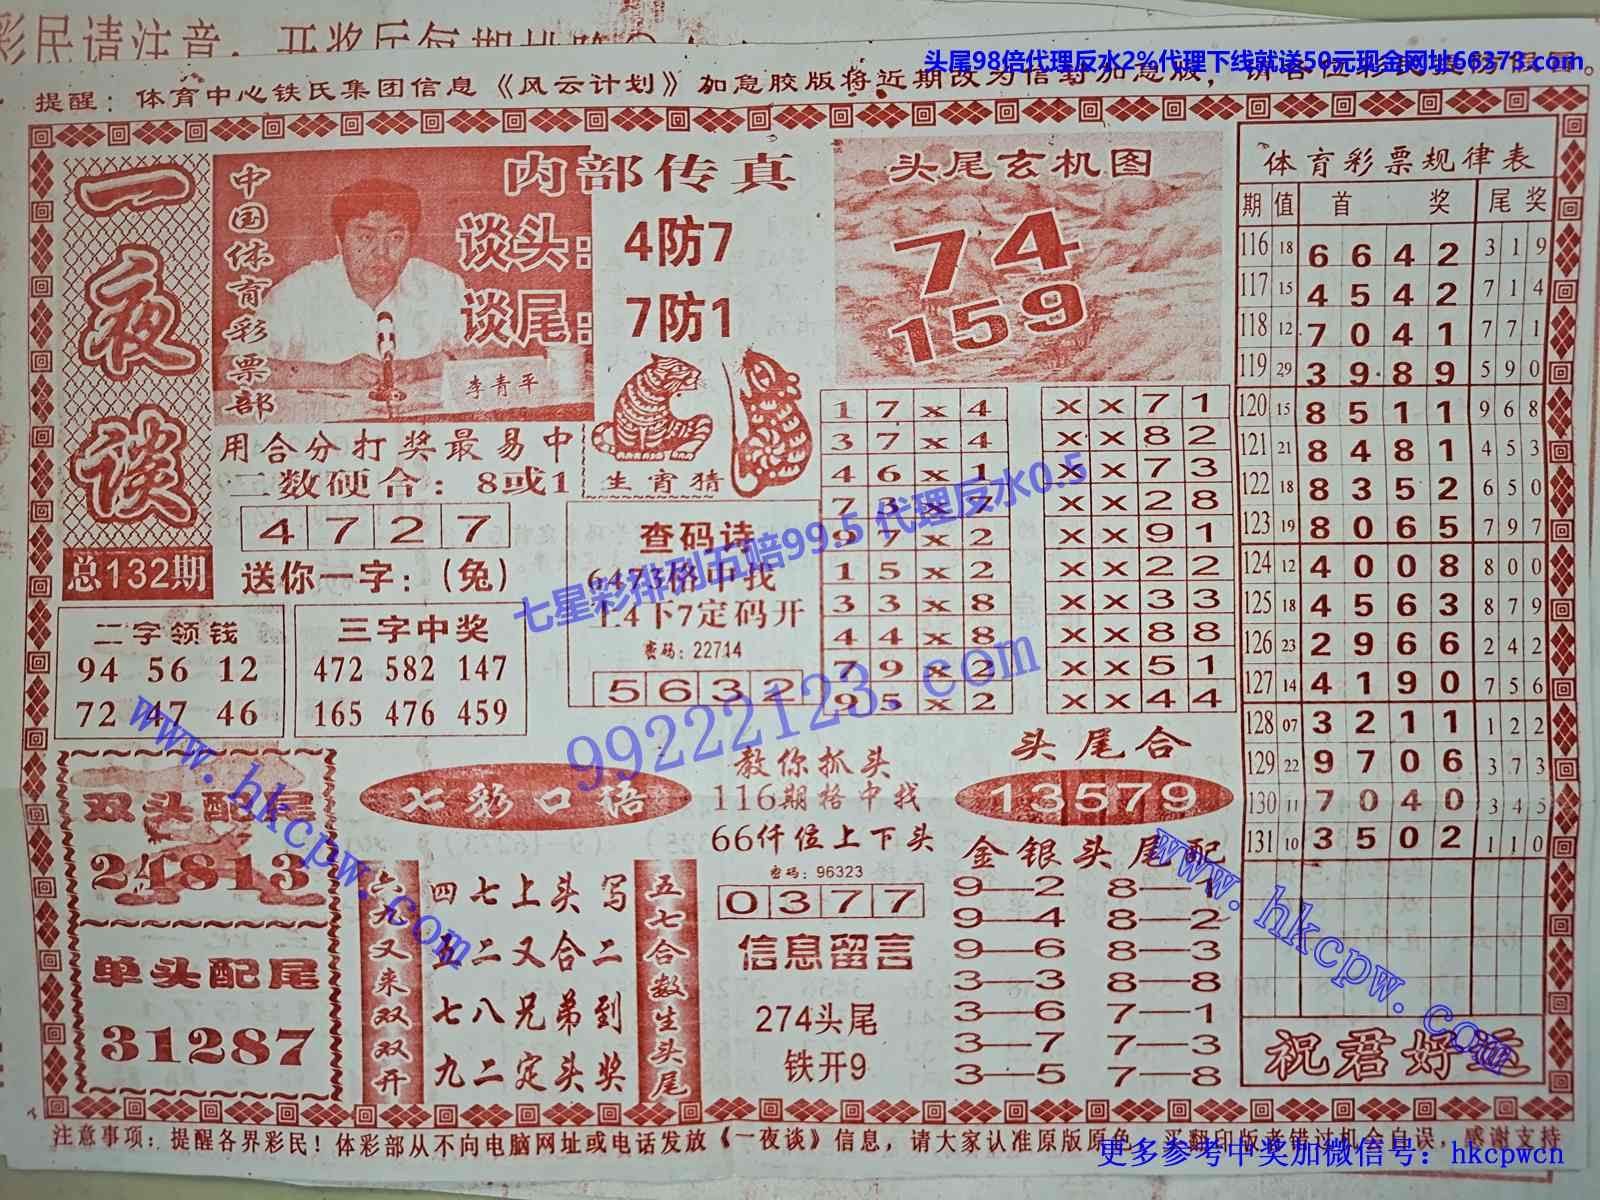 彩民请注意:开奖厅每期
头尾98倍代理反水2%代理下线就送50元现金网址66373.com
提醒：体育中心铁氏集团信息《风云计划》加急胶版将近期改为信封加急版，请各位彩民
一夜谈
总132期
中国体育彩票部
内部传真
谈头：4防7
谈尾：7防1
李青平
用合分打奖最易中
二数硬合：8或1
4 7 2 7
送你一字：（兔）
生肖猜
头尾玄机图
74
159
查码诗
6473格中找
上4下7定码开
密码：22714
5 6 3 2
1 7 x 4
3 7 x 4
4 6 x 1
7 3 x 7
9 7 x 2
1 5 x 2
3 3 x 8
4 4 x 8
7 9 x 2
9 5 x 2
x x 7 1
x x 8 2
x x 7 3
x x 2 8
x x 9 1
x x 2 2
x x 3 3
x x 8 8
x x 5 1
x x 4 4
二字领钱
94 56 12
72 47 46
三字中奖
472 582 147
165 476 459
双头配尾
24813
单头配尾
31287
七彩口语
六九又来双双开
四七上头写
五二又合二
七八兄弟到
九二定头奖
五七合数生头尾
教你抓头
116期格中找
66仟位上下头
密码：96323
0 3 7 7
信息留言
274头尾
铁开9
头尾合
13579
金银头尾配
9—2 8—1
9—4 8—2
9—6 8—3
3—3 8—8
3—6 7—1
3—7 7—3
3—5 7—8
体育彩票规律表
期 值 首 奖 尾奖
116 18 6 6 4 2 3 1 9
117 15 4 5 4 2 7 1 4
118 12 7 0 4 1 7 7 1
119 29 3 9 8 9 5 9 0
120 15 8 5 1 1 9 6 8
121 21 8 4 8 1 4 5 3
122 18 8 3 5 2 6 5 0
123 19 8 0 6 5 7 9 7
124 12 4 0 0 8 8 0 0
125 18 4 5 6 3 8 7 9
126 23 2 9 6 6 2 4 2
127 14 4 1 9 0 7 5 6
128 07 3 2 1 1 1 2 2
129 22 9 7 0 6 3 7 3
130 11 7 0 4 0 3 4 5
131 10 3 5 0 2 1 1 0
祝君好运
注意事项：提醒各界彩民！体彩部从不向电脑网址或电话发放《一夜谈》信息，请大家认准原版原色，买翻印版者错过机会自误，感谢支持
七星彩排列五赔99.5 代理反水0.5
99222123.com
www.hkcpw.com
www.hkcpw.com
更多参考中奖加微信号：hkcpwcn